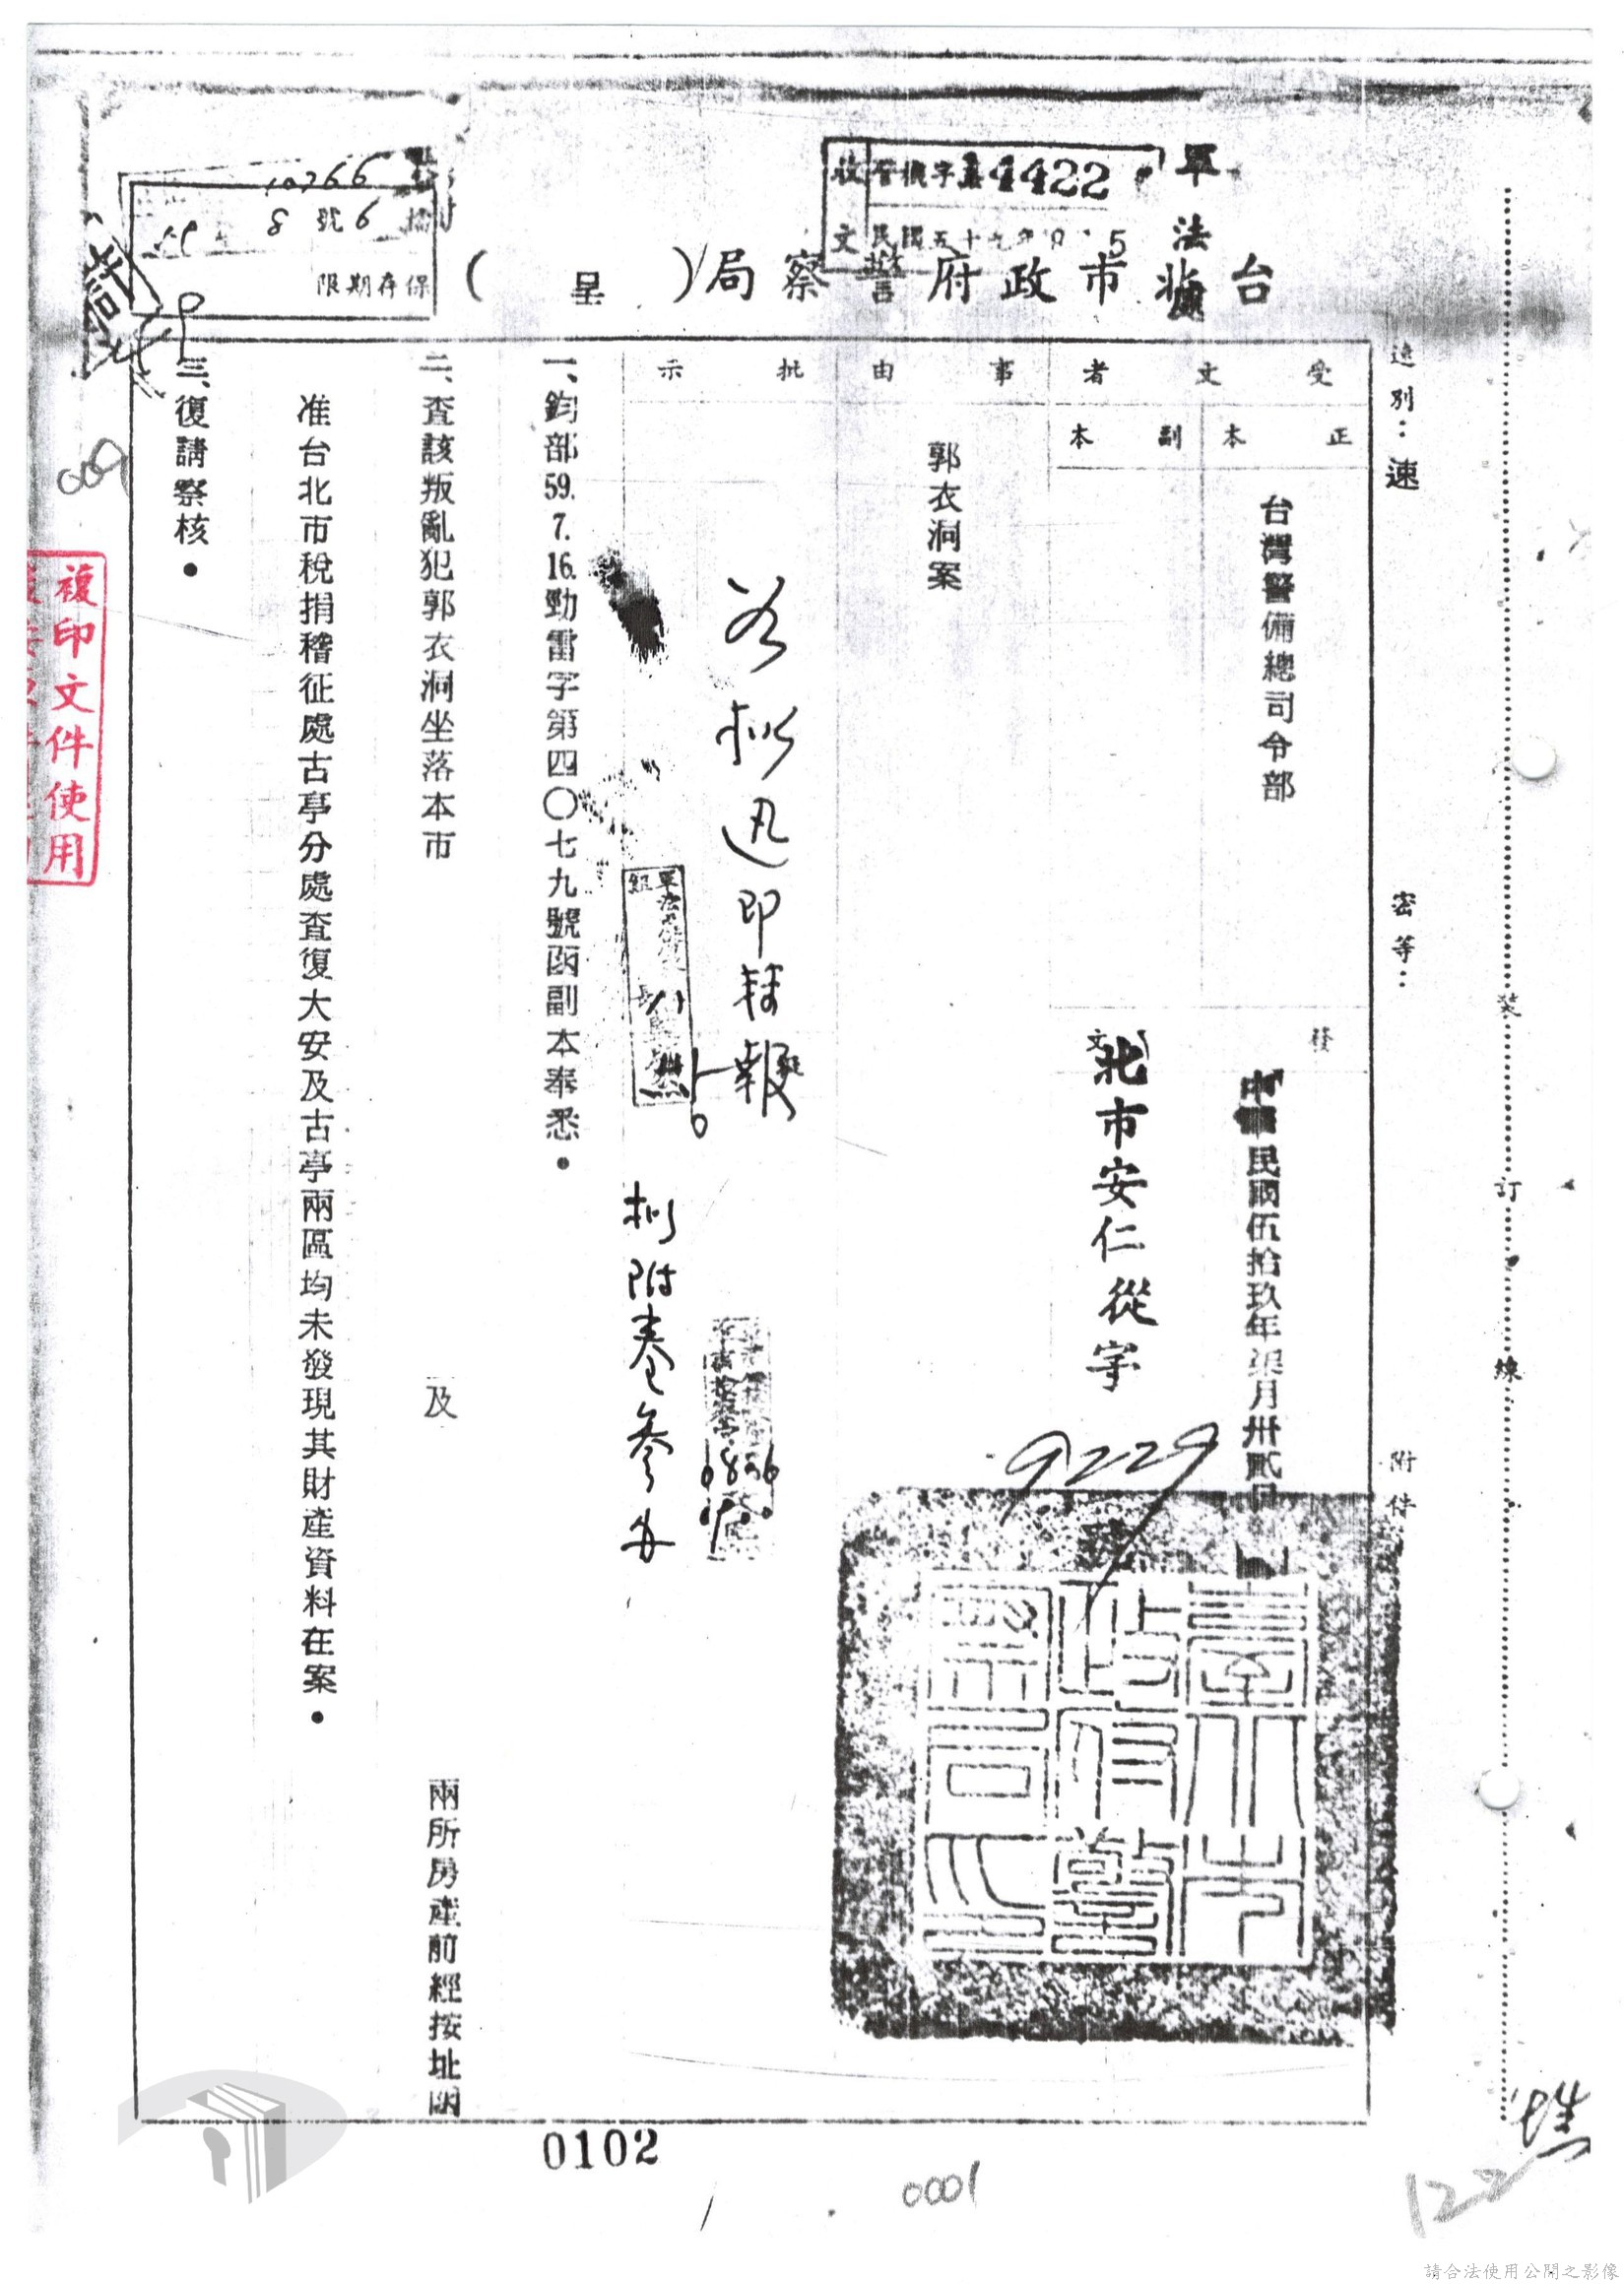 軍法處
收文
字第4422
台北市政府警察局(呈)
10766
8號6
保存期限
速別：速
密等：
附件
裝訂線
受文者
正本
台灣警備總司令部
副本
發文
中華民國伍拾玖年柒月卅貳日
北市安仁從字
9229
號
事由
郭衣洞案
批示
迅即
報
擬附卷參办
一、鈞部59.7.16.勁雷字第四〇七九號函副本奉悉。
二、查該叛亂犯郭衣洞坐落本市
及
兩所房產前經按址函
准台北市稅捐稽征處古亭分處查復大安及古亭兩區均未發現其財產資料在案。
三、復請察核。
臺北市政府警察局印
009
複印文件使用
0102
0001
122
請合法使用公開之影像